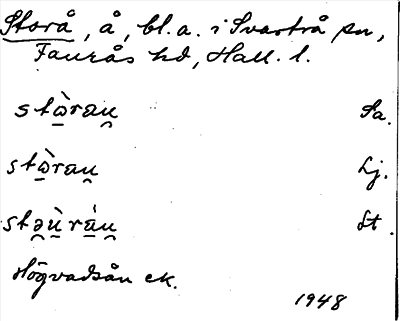 Storå, å, bl. a. i Svartrå sn,
Faurås hd, Hall. l.
stὼ̲rau̯ Sa.
stὼ̲rau̯ Lj.
stə̯ù̲rá̲u̯ St.
Högvadsån ek.
1948